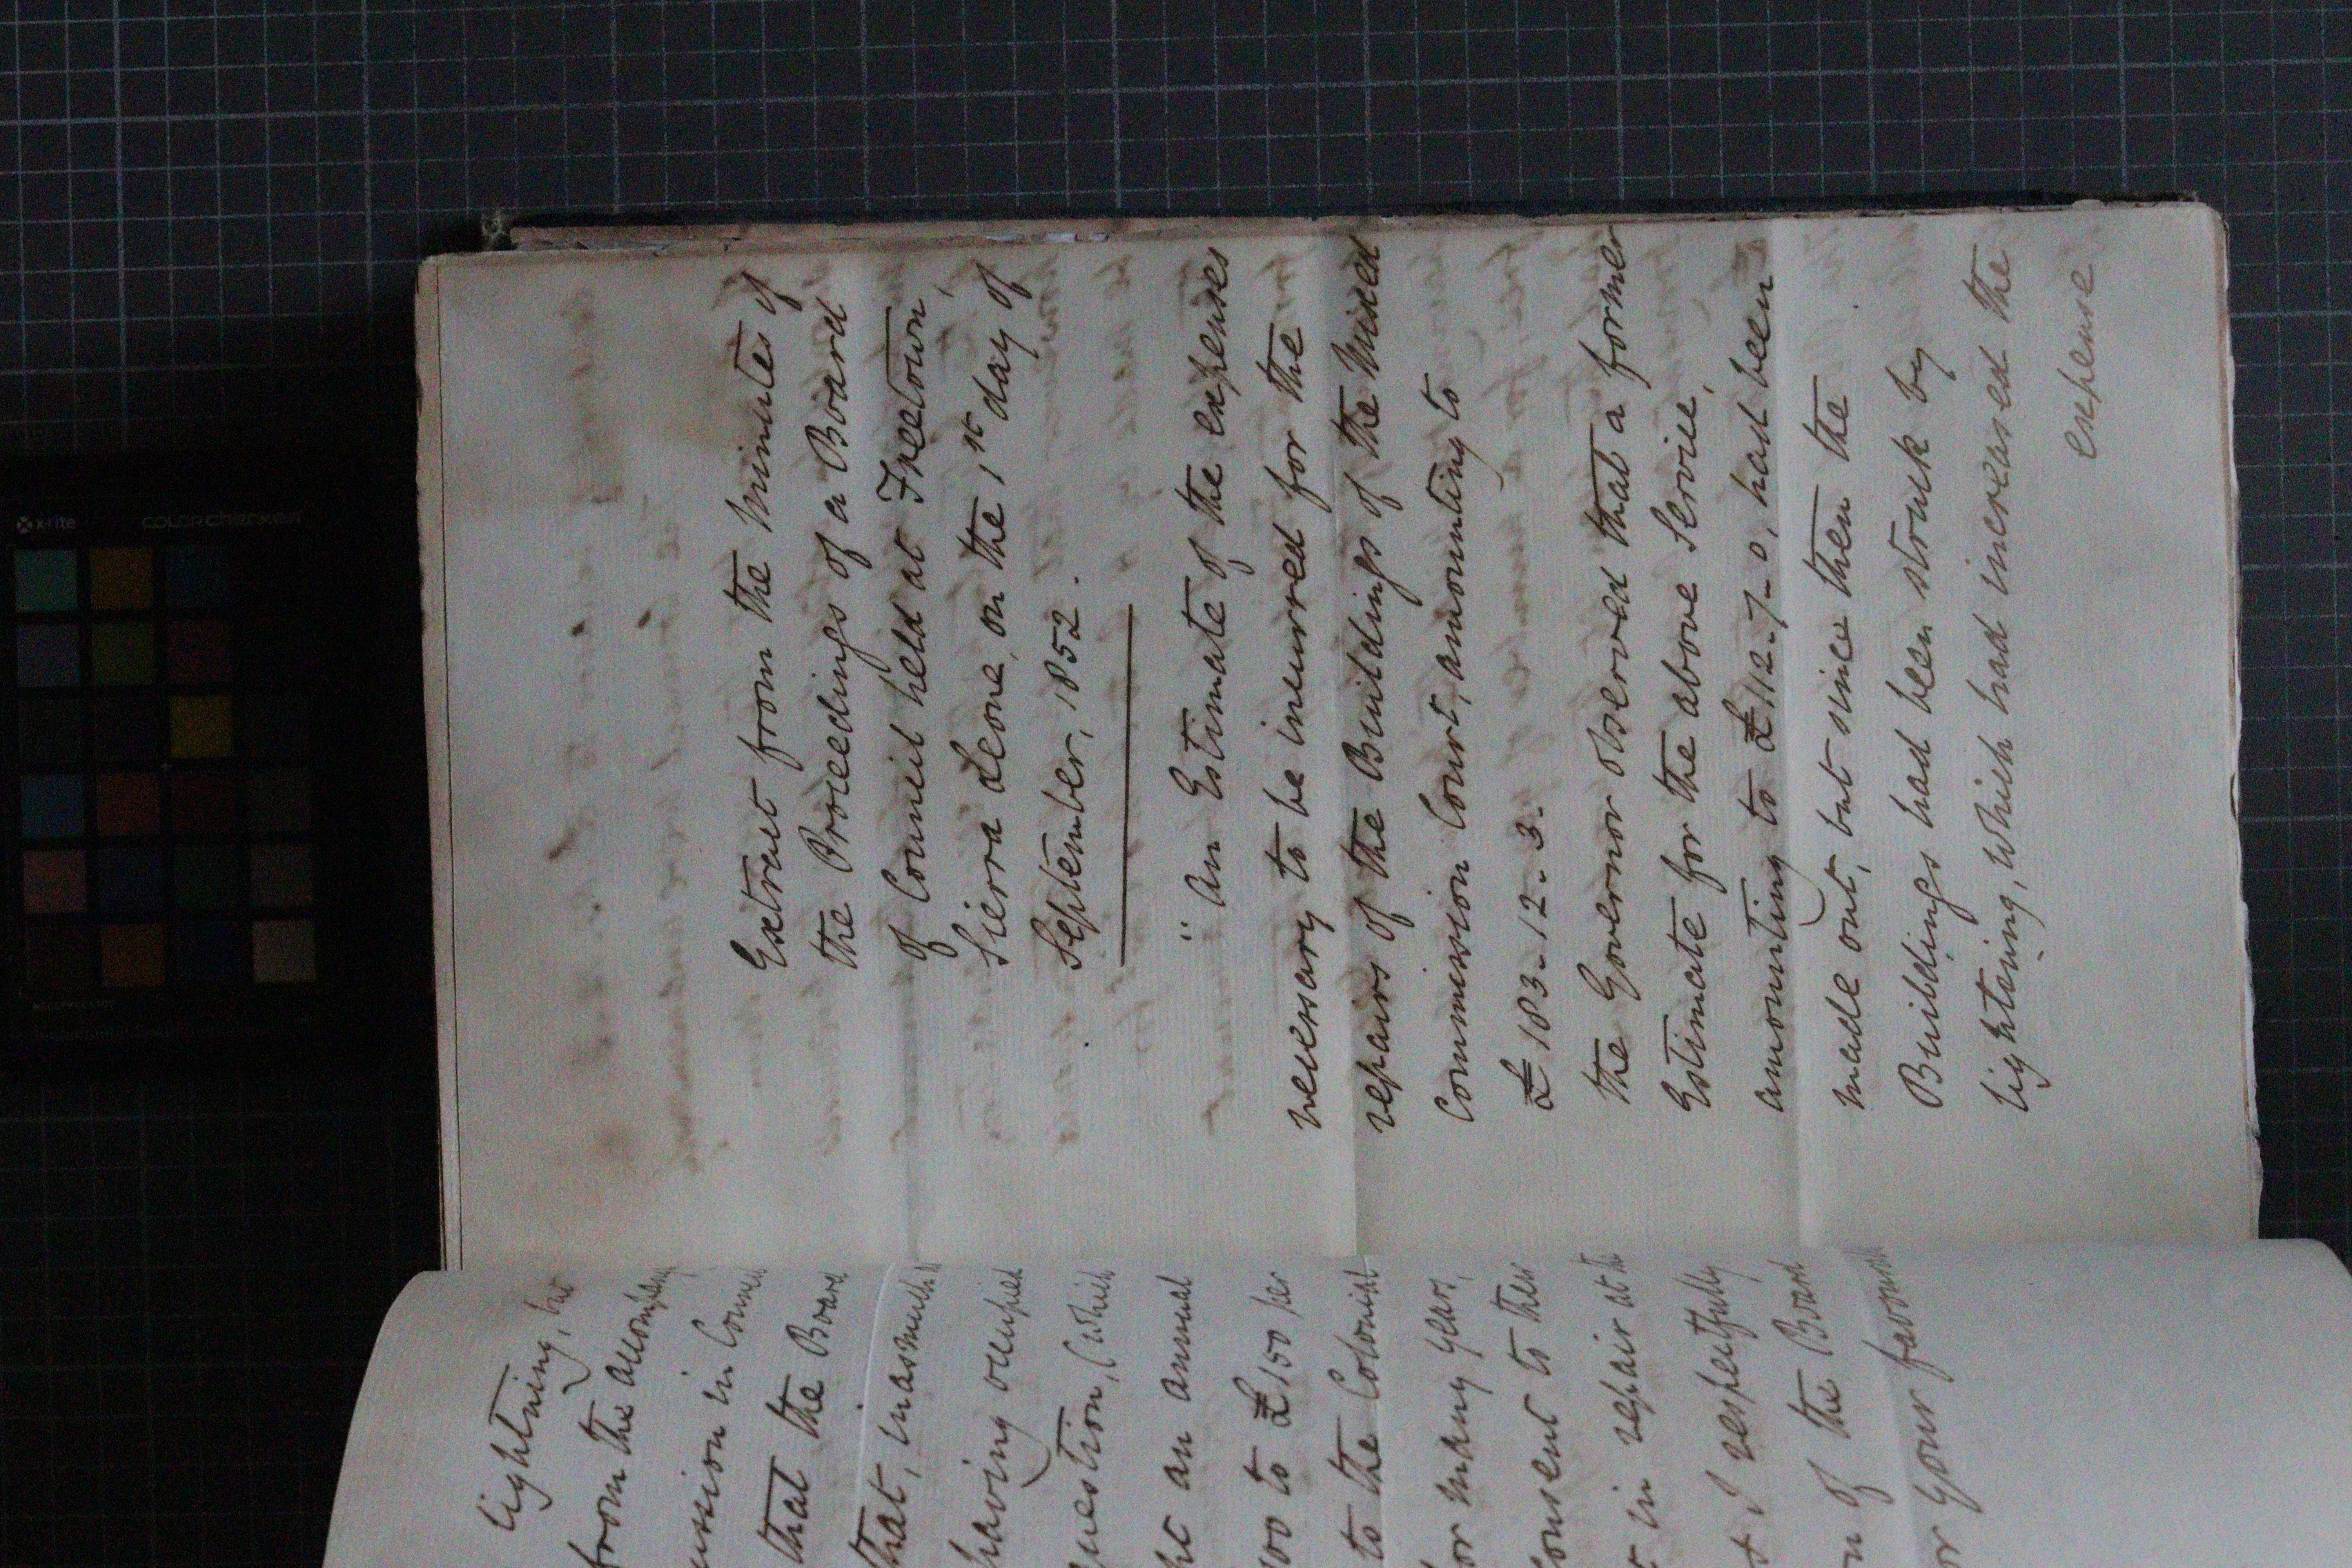 Extract from the Minutes of
the Proceedings of a Board
of Council held at Freetown,
Sierra Leone, on the 1st day of
September, 1852.
" An Estimate of the expenses
necessary to be incurred for the
repairs of the Buildings of the Mixed
Commission Court, amounting to
£183..12..3.
The Governor observed that a former
Estimate for the above Service,
amounting to £112..7..0, had been
made out, but since then the
Buildings had been struck by
lightning, which had increased the
expense
lightning, but
from the
in
that the Board
that, inasmuch
having occupied
question, (which
an annual
to £150 per
to the Colonial
or many years,
consent to their
in repair at th
I respectfully
of the Board
or your favourab
x-rite
colorchecker